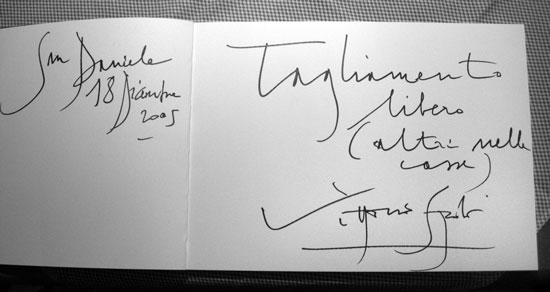 San Daniele
18 Dicembre
2005
Tagliamento
libero
(altri nelle
casse)
Vittorio Sgarbi